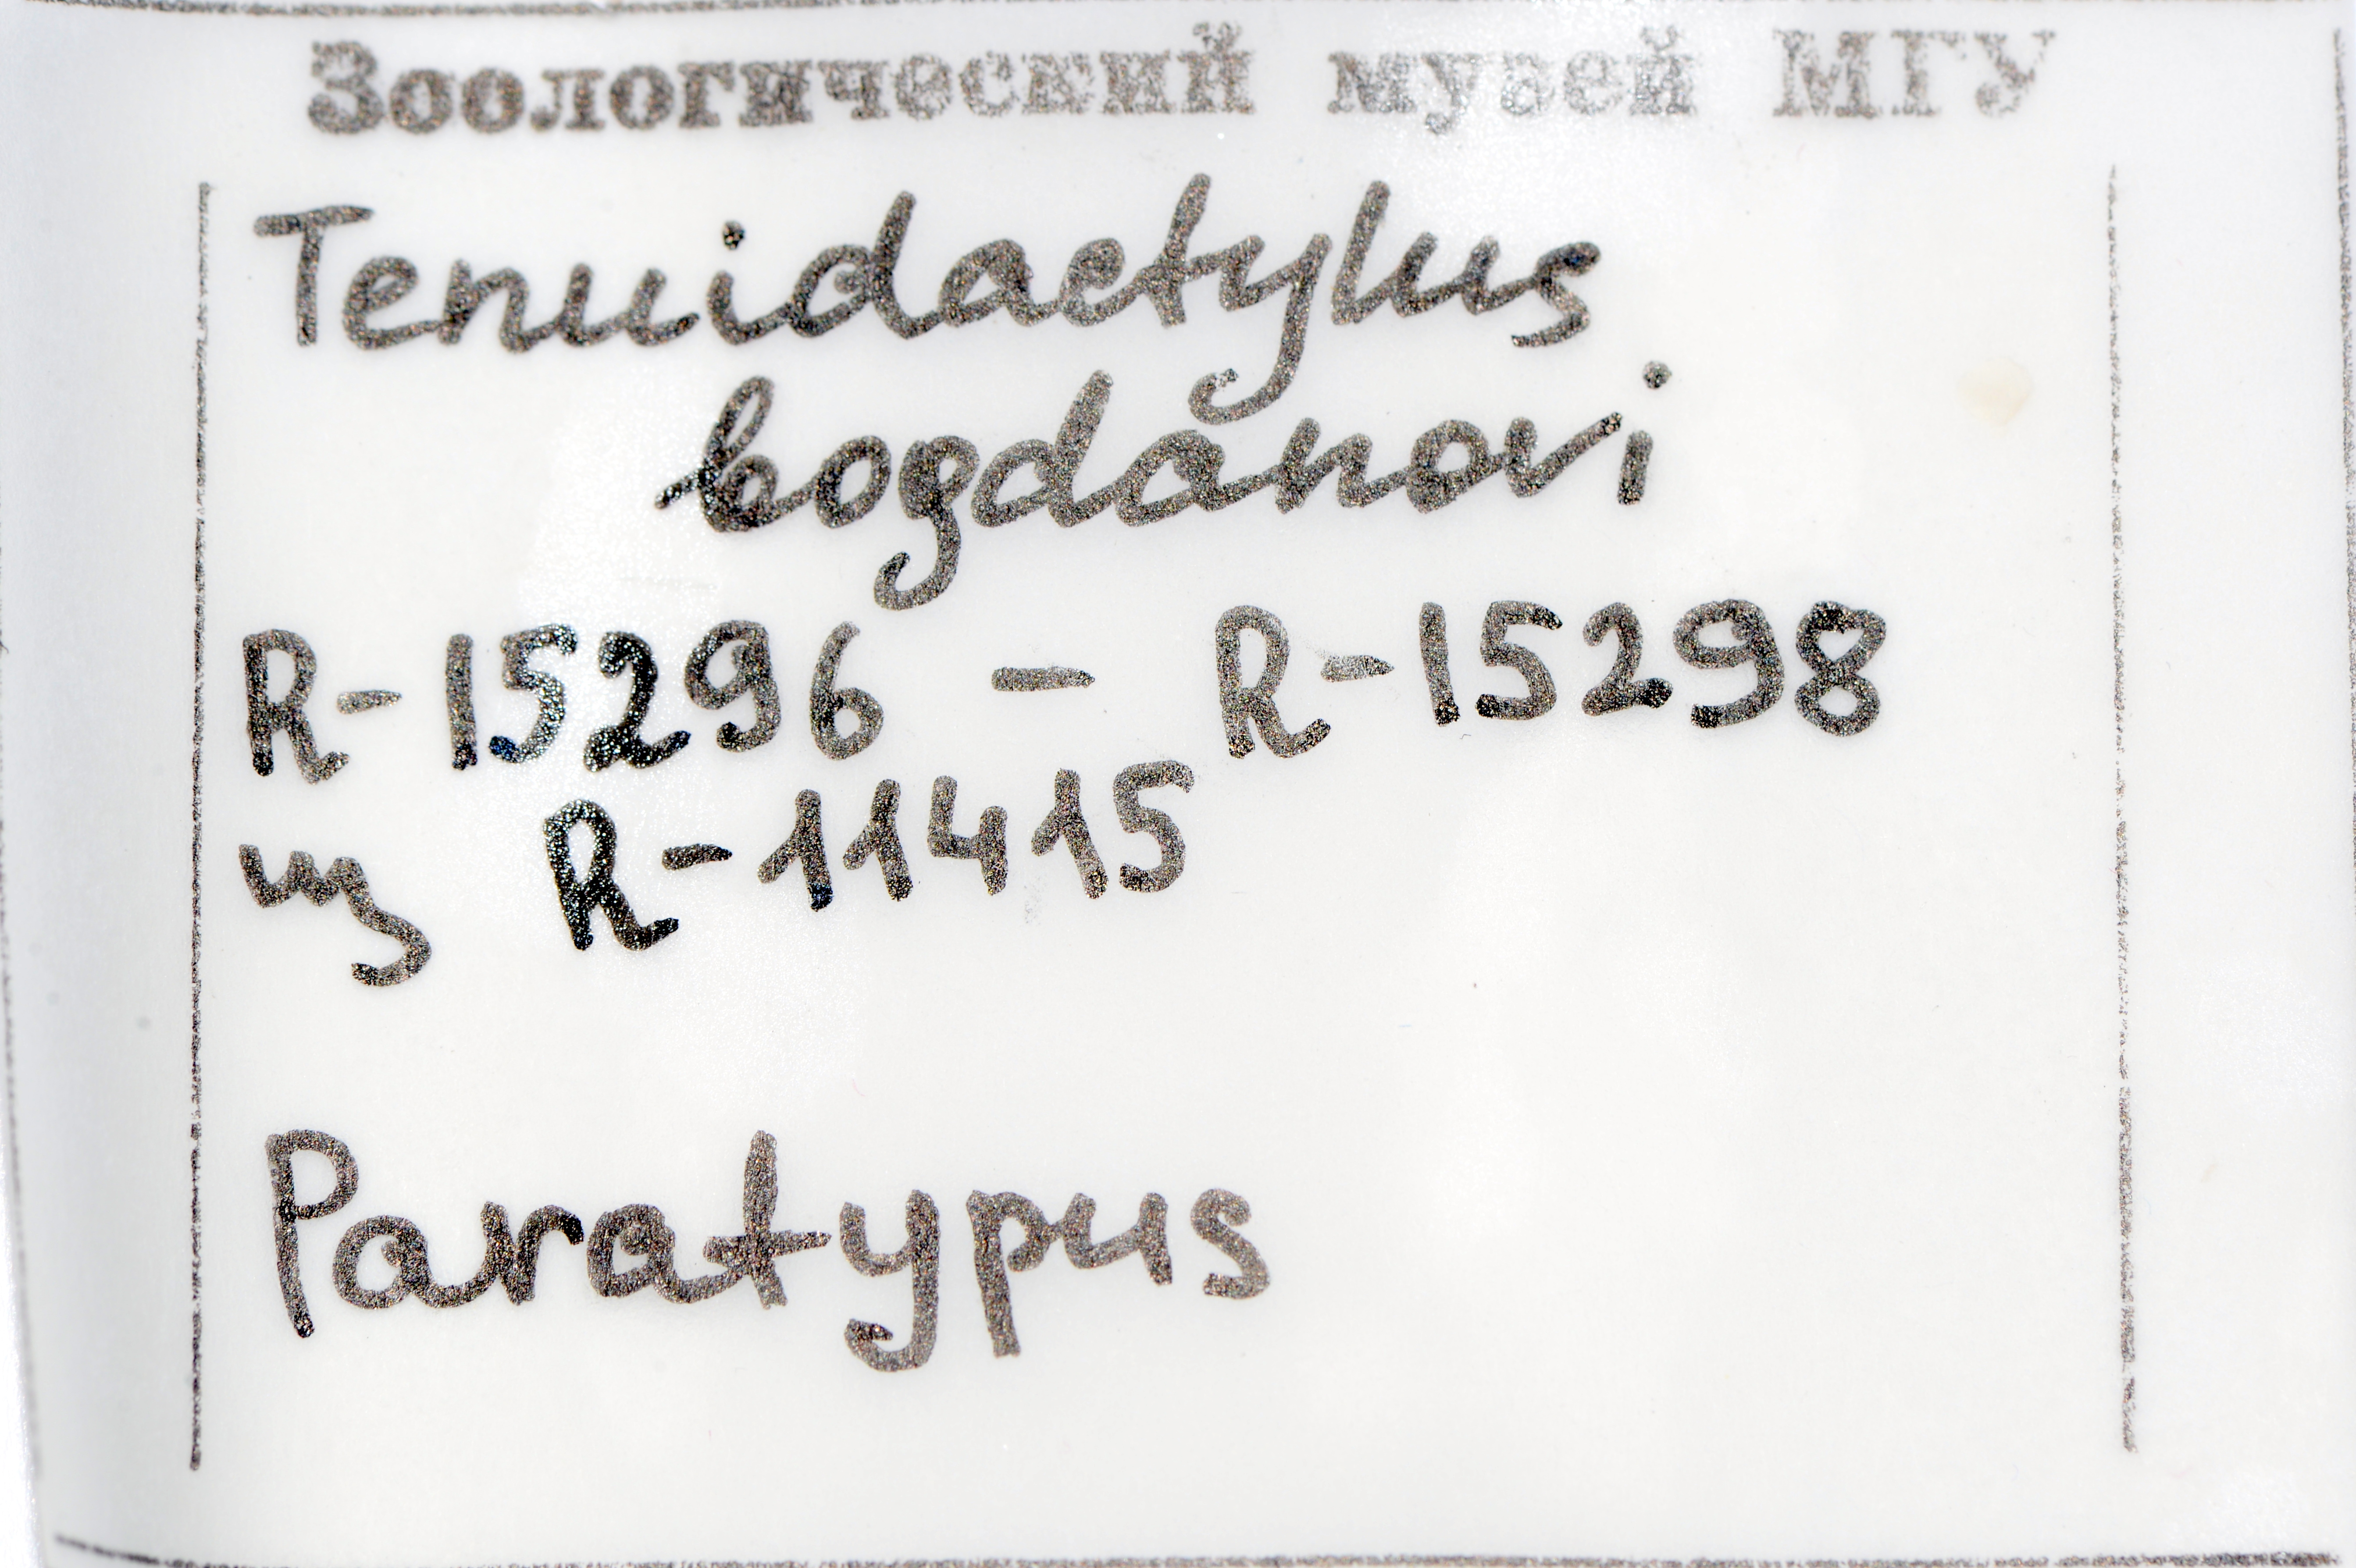 Зоологический музей МГУ
Tenuidactylus
bogdanovi
R-15296 - R-15298
из R-11415
Paratypus